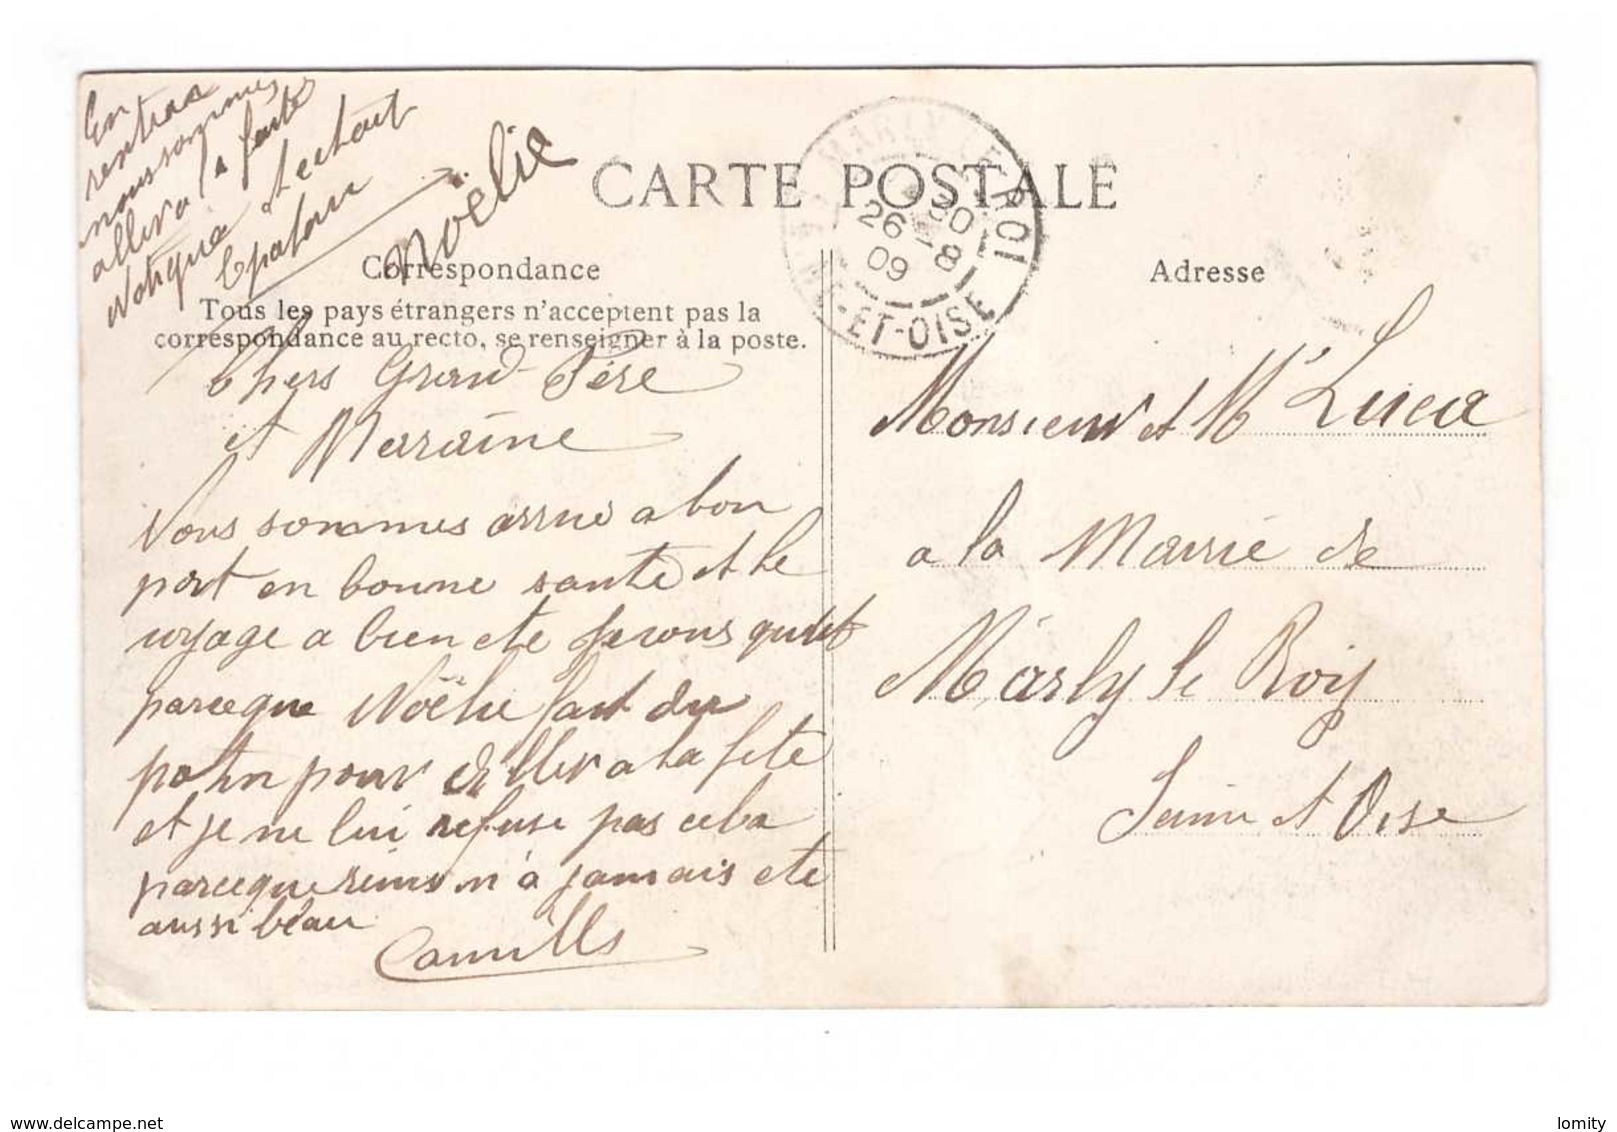 En
rentrar
nous sommes
allera la faite
tectout
Noelie
CARTE POSTALE
MARLY-LE-ROI
26 - 8
09
-ET-OISE
Correspondance
Adresse
Tous les pays étrangers n'acceptent pas la
correspondance au recto, se renseigner à la poste.
Chers Grand-Père
et Maraine
Nous sommes arrivé a bon
port en bonne santé et le
voyage a bien ete
parceque Noëlie fait du
potin pour aller a la fete
et je ne lui refuse pas cela
parceque reims n'a jamais ete
aussi beau
Camille
Monsieur et Mr Luca
a la Mairie de
Marly le Roiy
Seine et Oise
www.delcampe.net
lomity